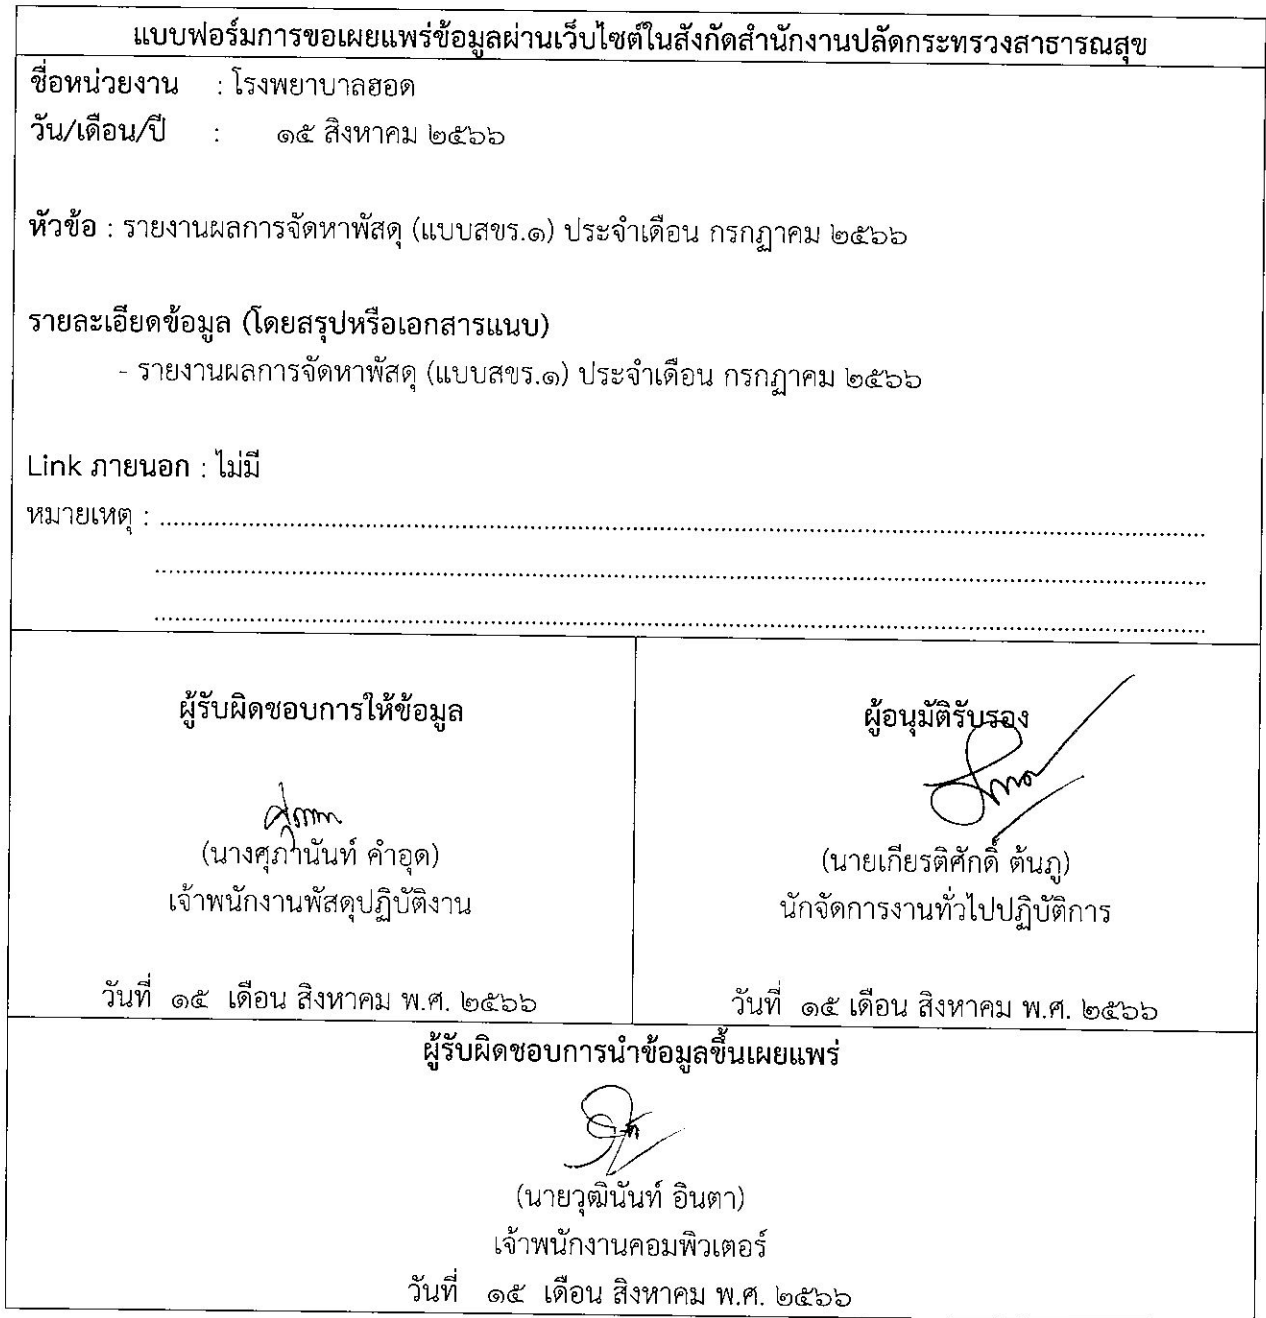 แบบฟอร์มการขอเผยแพร่ข้อมูลผ่านเว็บไซต์ในสังกัดสำนักงานปลัดกระทรวงสาธารณสุข
ชื่อหน่วยงาน : โรงพยาบาลฮอด
วัน/เดือน/ปี : ๑๕ สิงหาคม ๒๕๖๖
หัวข้อ : รายงานผลการจัดหาพัสดุ (แบบสขร.๑) ประจำเดือน กรกฏาคม ๒๕๖๖
รายละเอียดข้อมูล (โดยสรุปหรือเอกสารแนบ)
- รายงานผลการจัดหาพัสดุ (แบบสขร.๑) ประจำเดือน กรกฏาคม ๒๕๖๖
Link ภายนอก : ไม่มี
หมายเหตุ :
ผู้รับผิดชอบการให้ข้อมูล
(นางศุภานันท์ คำอุด)
เจ้าพนักงานพัสดุปฏิบัติงาน
วันที่ ๑๕ เดือน สิงหาคม พ.ศ. ๒๕๖๖
ผู้อนุมัติรับรอง
(นายเกียรติศักดิ์ ต้นภู)
นักจัดการงานทั่วไปปฏิบัติการ
วันที่ ๑๕ เดือน สิงหาคม พ.ศ. ๒๕๖๖
ผู้รับผิดชอบการนำข้อมูลขึ้นเผยแพร่
(นายวุฒินันท์ อินตา)
เจ้าพนักงานคอมพิวเตอร์
วันที่ ๑๕ เดือน สิงหาคม พ.ศ. ๒๕๖๖